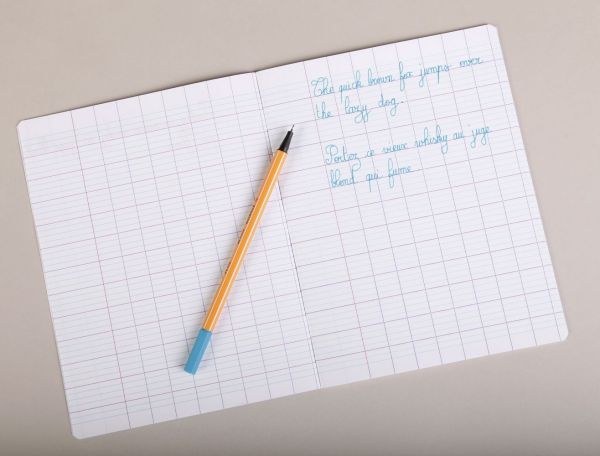 The quick brown fox jumps over
the lazy dog.
Portez ce vieux whisky au juge
blond qui fume